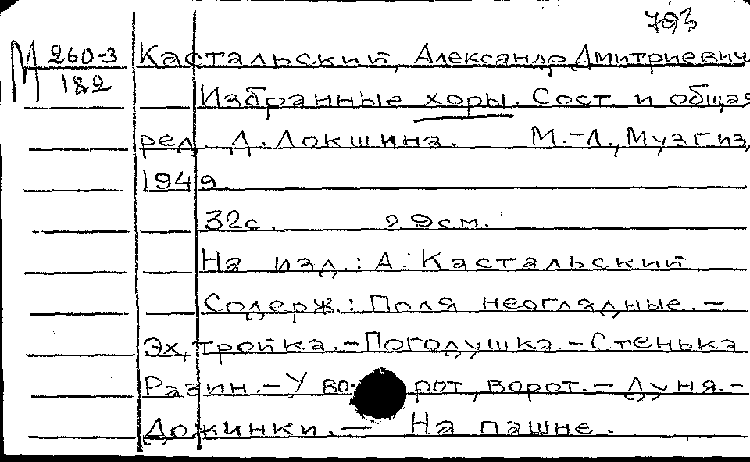 793
М 260-3 Кастальский, Александр Дмитриевич
182 Избранные хоры. Сост. и общая
ред. Д. Локшина. М.-Л., Музгиз,
1949
32с. 29см.
На изд.: А. Кастальский
Содерж.: Поля неоглядные. –
Эх, тройка. – Погодушка. – Стенька
Разин. – У во рот, ворот. – Дуня. –
Дожинки. – На пашне.